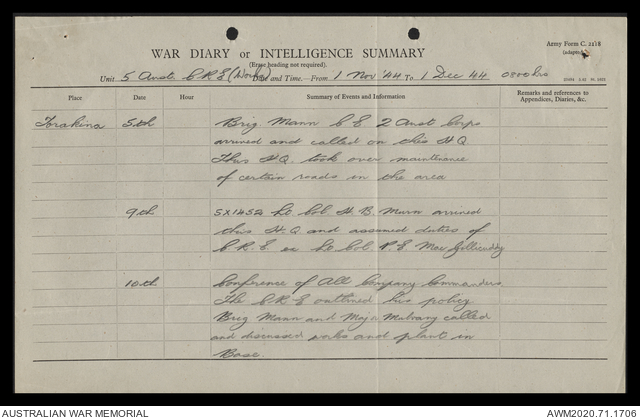 Army Form C. 2118
(adapted)
WAR DIARY or INTELLIGENCE SUMMARY
(Erase heading not required).
Unit 5 Aust. C.R.E (Works) Date and Time.—From 1 Nov '44 To 1 Dec 44 0800 hrs
Place Date Hour Summary of Events and Information Remarks and references to Appendices, Diaries, &c.
Torakina 5th Brig. Mann C E 2 Aust Corps
arrived and called on this H.Q
This H.Q. took over maintenance
of certain roads in the area
9th SX1452 Lt Col H. B. arrived
this H.Q and assumed duties of
C.R.E. ex Lt Col. R E Mac
10th Conference of All Company Commanders
The C.R.E outlined his policy
Brig Mann and Major called
and discussed and plant in
Base.
AUSTRALIAN WAR MEMORIAL AWM2020.71.1706